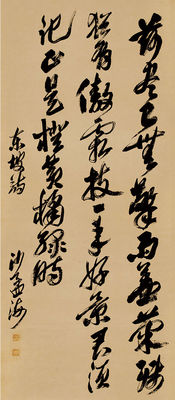 荷盡已無擎雨蓋菊殘
猶有傲霜枝一年好景君須
記正是橙黄橘綠時
東坡詩
沙孟海